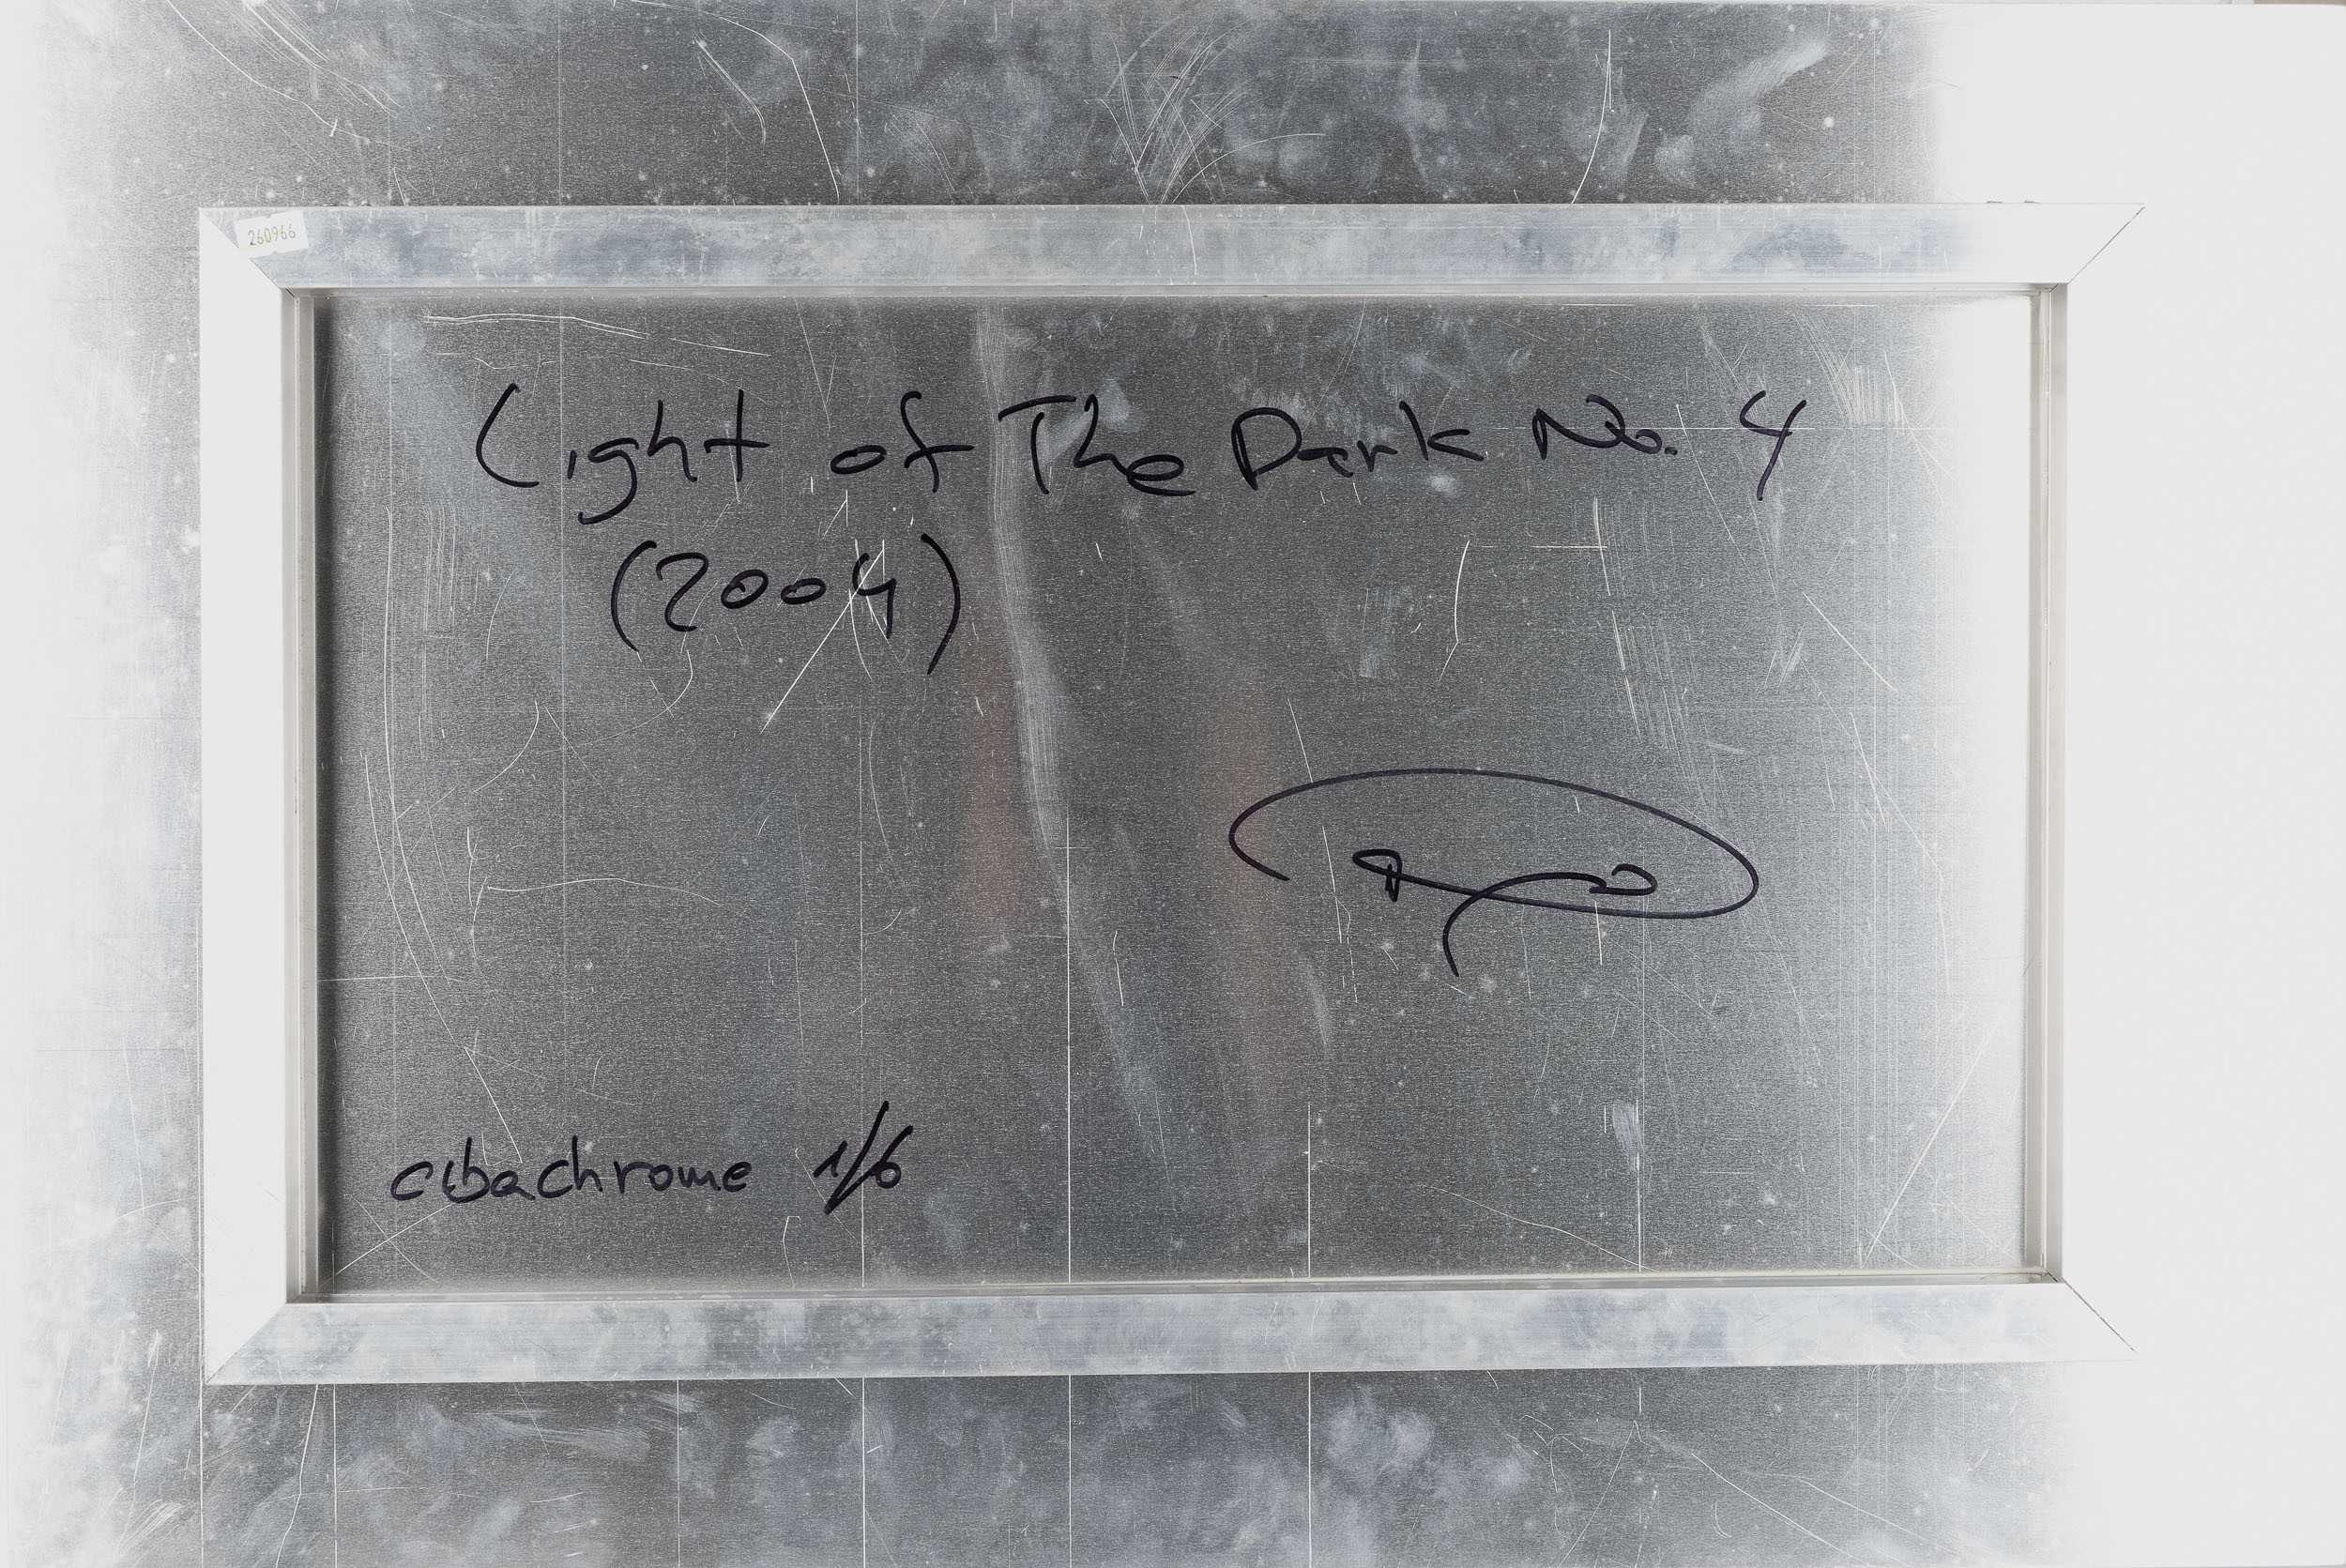 260966
Light of The Dark No. 4
(2004)
cibachrome 1/6